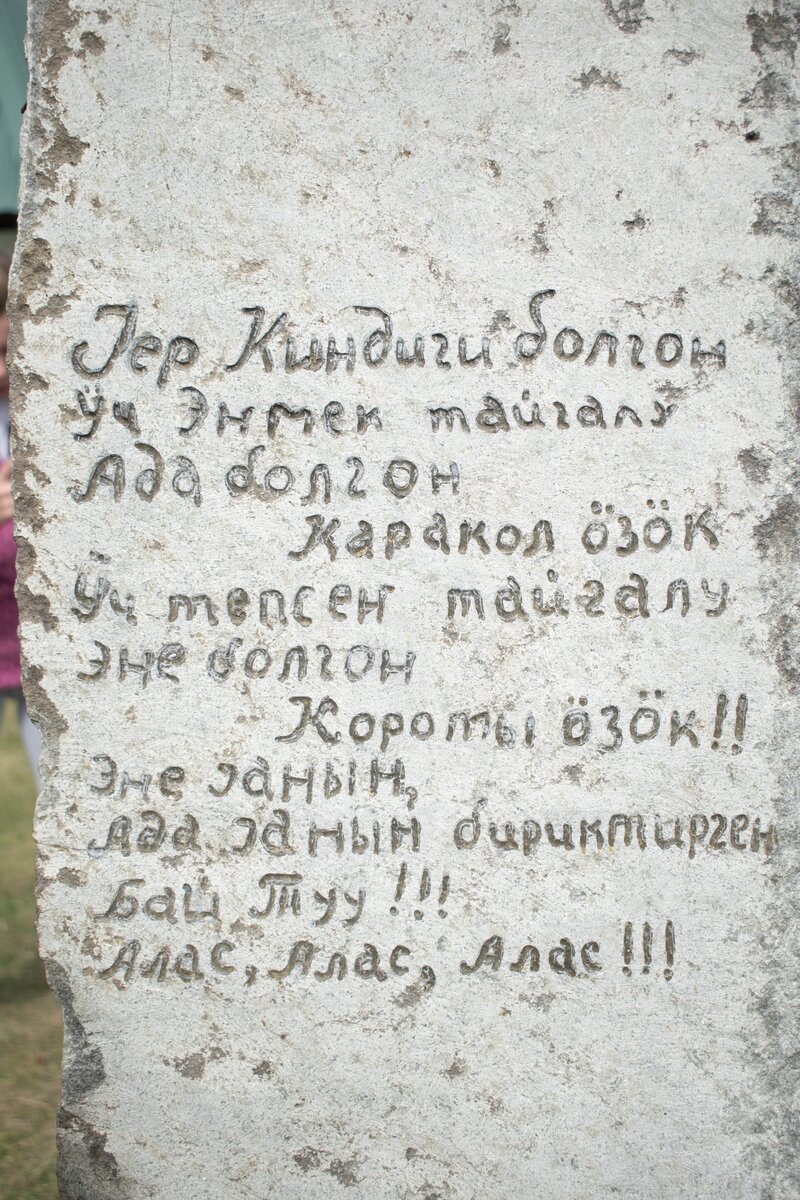 Јер Киндиги болгон
Ӱч Энмек тайгалу
Ада болгон
Каракол ӧзӧк
Ӱч тепсеҥ тайгалу
Эне болгон
Короты ӧзӧк!!
Эне јаныҥ,
Ада јаныҥ бириктирген
Бай Туу!!!
Алас, Алас, Алас!!!